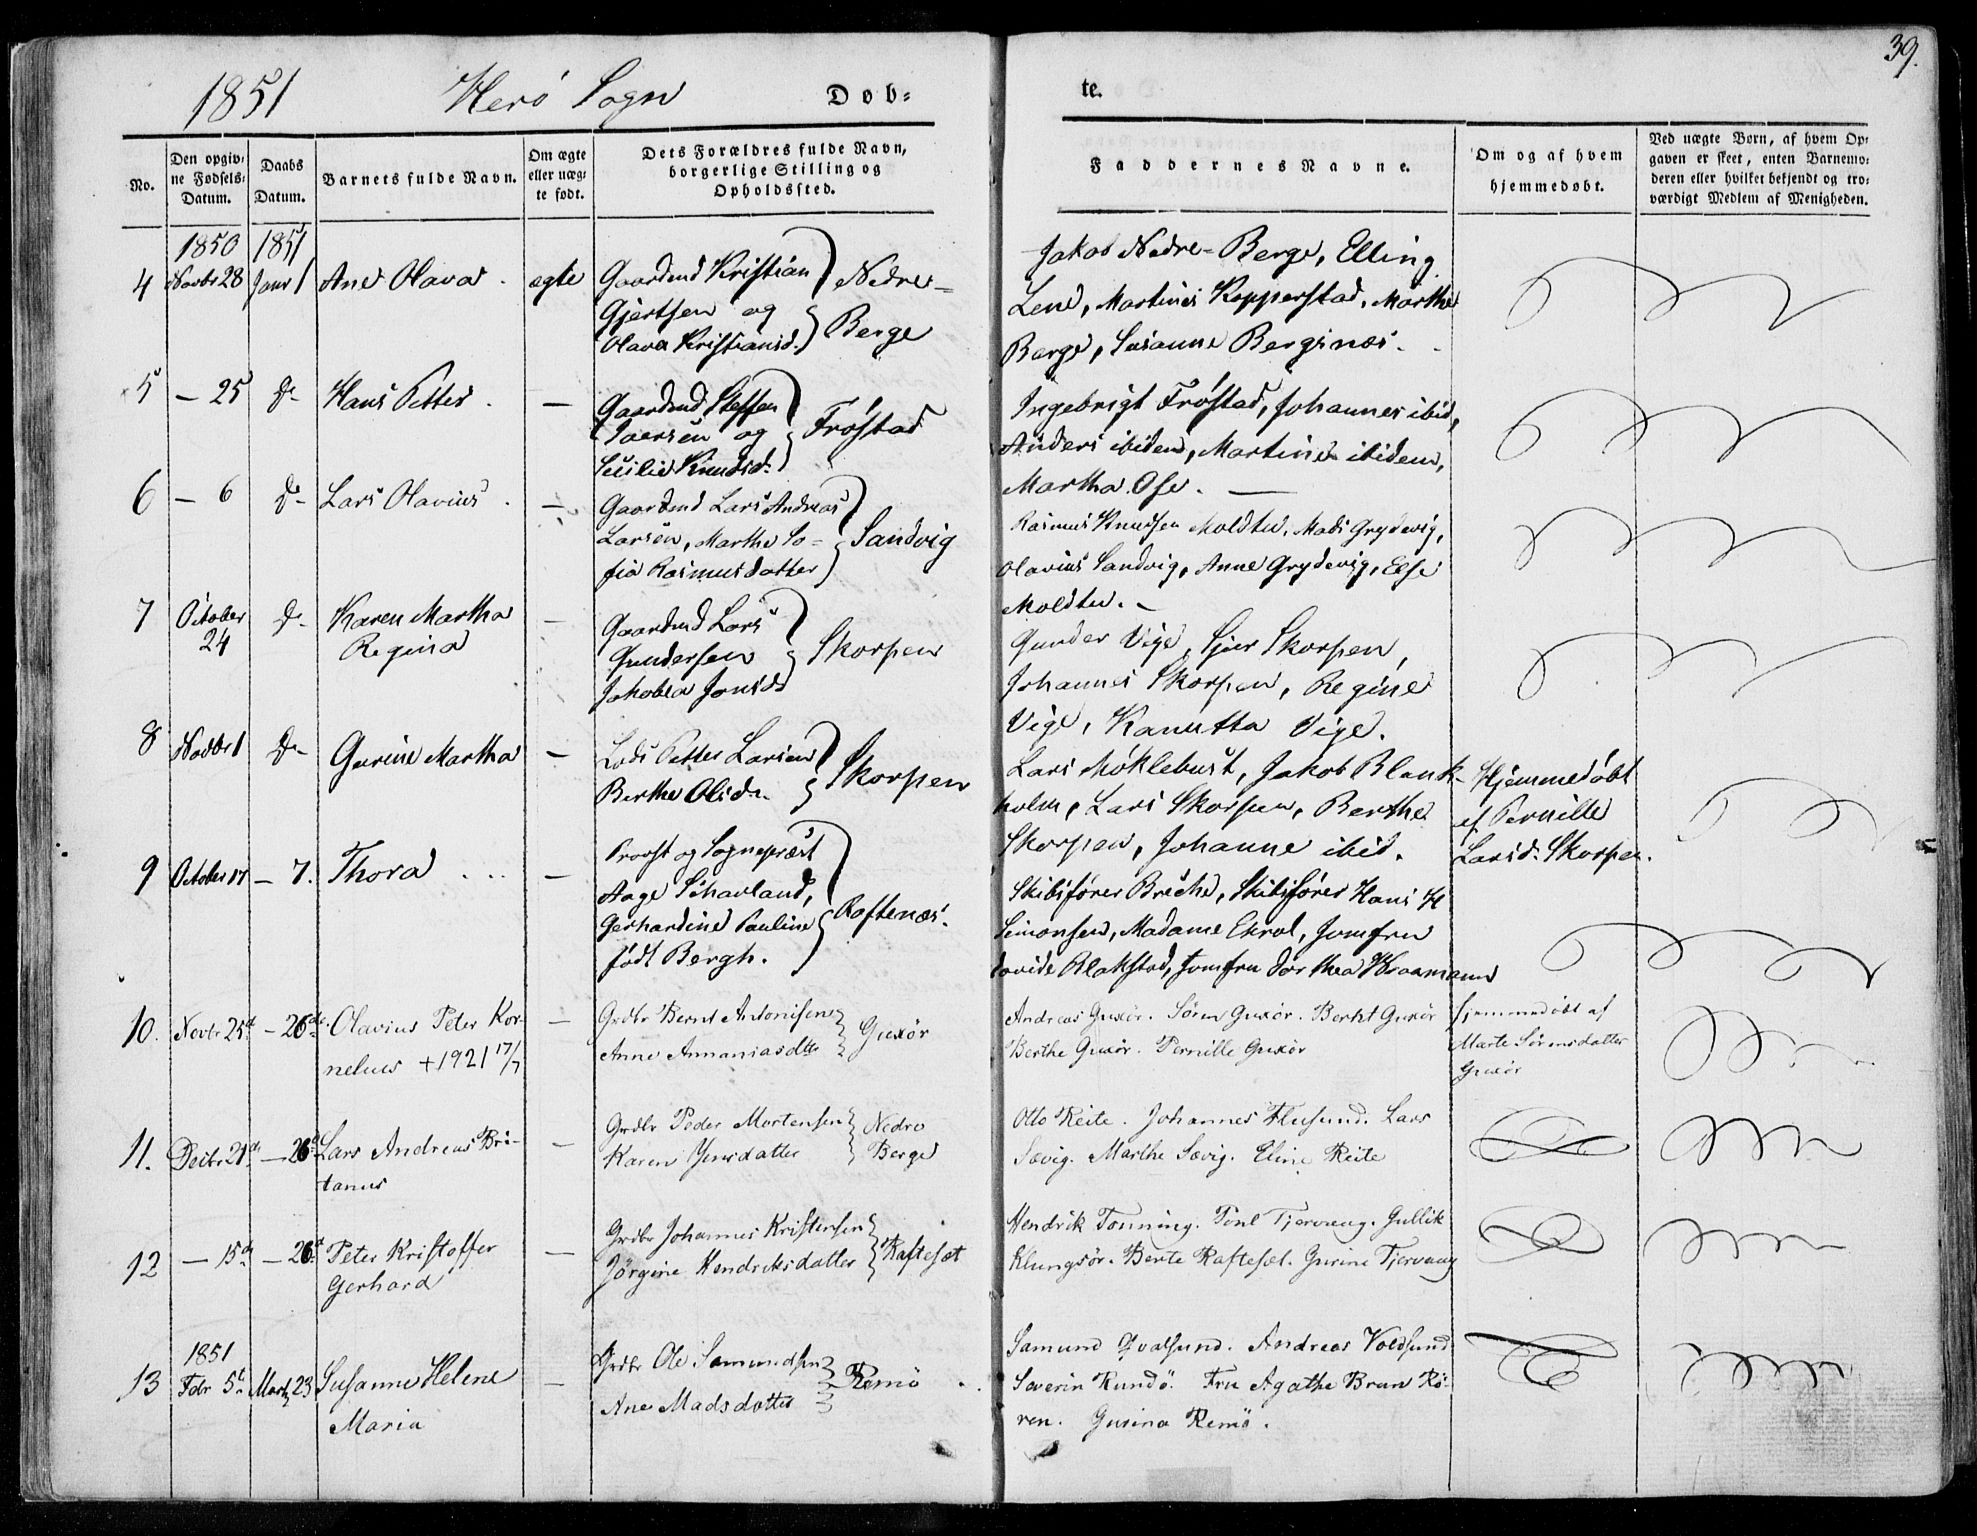 39.
1851 Herö Sogn Døb-
te.
No.
Den opgiv-
ne Fødsels-
Datum.
Daabs
Datum.
Barnets fulde Navn.
Om ægte
eller uæg-
te født.
Dets Forældres fulde Navn,
borgerlige Stilling og
Opholdssted.
Faddernes Navne.
Om og af hvem
hjemmedøbt.
Ved uægte Børn, af hvem Op-
gaven er skeet, enten Barnemo-
deren eller hvilket bekjendt og tro-
værdigt Medlem af Menigheden.
1850 1851
4 Novbr 28 Janr 1 Ane Olava . ægte
Gaardmd Kristian
Gjertsen og
Olava Kristiansd.
Nedre-
Berge
Jakob Nedre-Berge, Elling
Lene, Martines Kopperstad, Marthe
Berge, Susanne Bergsnæs.
5 — 25 Do Hans Petter . —
Gaardmd Steffen
Iversen og
Sicilie Knudsd.
Fröstad
Ingebrigt Fröstad, Johannes ibid,
Anders ibidem, Martine ibidem,
Martha Ose. —
6 — 6 Do Lars Olavius . —
Gaardmd Lars Andreas
Larsen, Marthe So-
fia Rasmusdatter
Sandvig
Rasmus Knudsen Moldtu, Mads Grydevig,
Olavius Sandvig, Anne Grydevig, Else
Moldtu. —
7 October
24 Do Karen Martha
Regina —
Gaardmd Lars
Gundersen
Jakobea Jonsd.
Skorpen
Gunder Vige, Sjur Skorpen,
Johannes Skorpen, Regine
Vige, Kanutta Vige.
8 Novbr 1 Do Gurine Martha —
Lods Petter Larsen
Berthe Olsd.
Skorpen
Lars Möklebust, Jakob Blank-
holm, Lars Skorpen, Berthe
Skorpen, Johanne ibid.
Hjemmedöbt
af Pernille
Larsd. Skorpen.
9 October 17 — 7. Thora . . . —
Provst og Sognepræst
Aage Schavland,
Gerhardine Pauline
födt Bergh.
Raftenæs.
Skibsförer Breche, Skibsförer Hans H
Simonsen, Madame Ekrol, Jomfru
Blakstad, Jomfru Dorthea Kraamann
10. Novbr 25d — 26de Olavius Peter Kor-
nelius +1921 17/7 —
Grdbr Bernt Antonisen
Anne Annaniasdtr
Guxör
Andreas Guxör. Sören Guxör. Berht Guxör
Berthe Guxör. Pernille Guxör
Hjemmedöbt af
Marte Sörensdatter
Guxör
11. Decbr 21de — 26d Lars Andreas Bri-
tanus —
Grdbr Peder Mortensen
Karen Jensdatter
Nedre
Berge
Otto Reite. Johannes Flusund. Lars
Sævig. Marthe Sævig. Eline Reite
12 — 15de — 26d Peter Kristoffer
Gerhard —
Grdbr Johannes Kristensen
Jörgine Hendriksdatter
Raftesæt
Hendrik Tonning. Tönl Tjervaag. Gullik
Klungsör. Bente Raftesæt. Gurine Tjervaag
1851
13 Febr 5t Marts 23 Susanne Helene
Maria —
Grdbr Ole Samundsen
Ane Madsdatter
Remö
Samund Qvalsund. Andreas Voldsund
Severin Rundö. Fru Agathe Brun Rö-
ren. Gurina Remö.